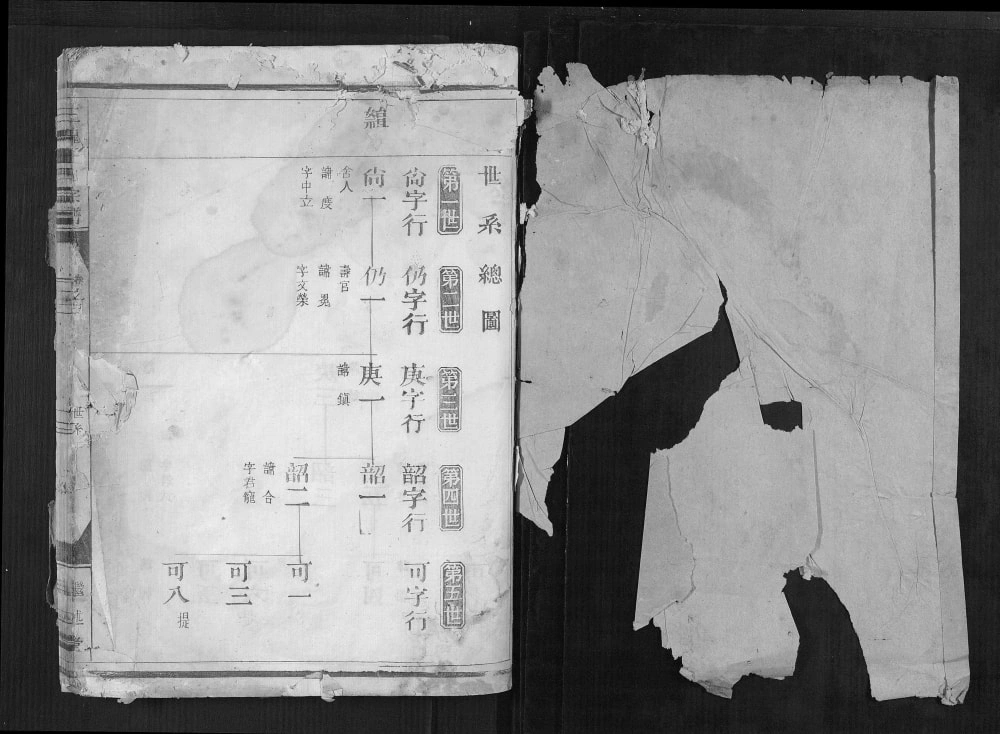 世系總圖
第一世
第二世
第三世
第四世
第五世
尙字行
仍字行
庚字行
韶字行
可字行
尙一
舍人
諱度
字中立
仍一
壽官
諱晃
字文榮
庚一
諱鎮
韶一
韶二
諱合
字君寵
可一
可三
可八
提
宗譜
世系
繼述堂